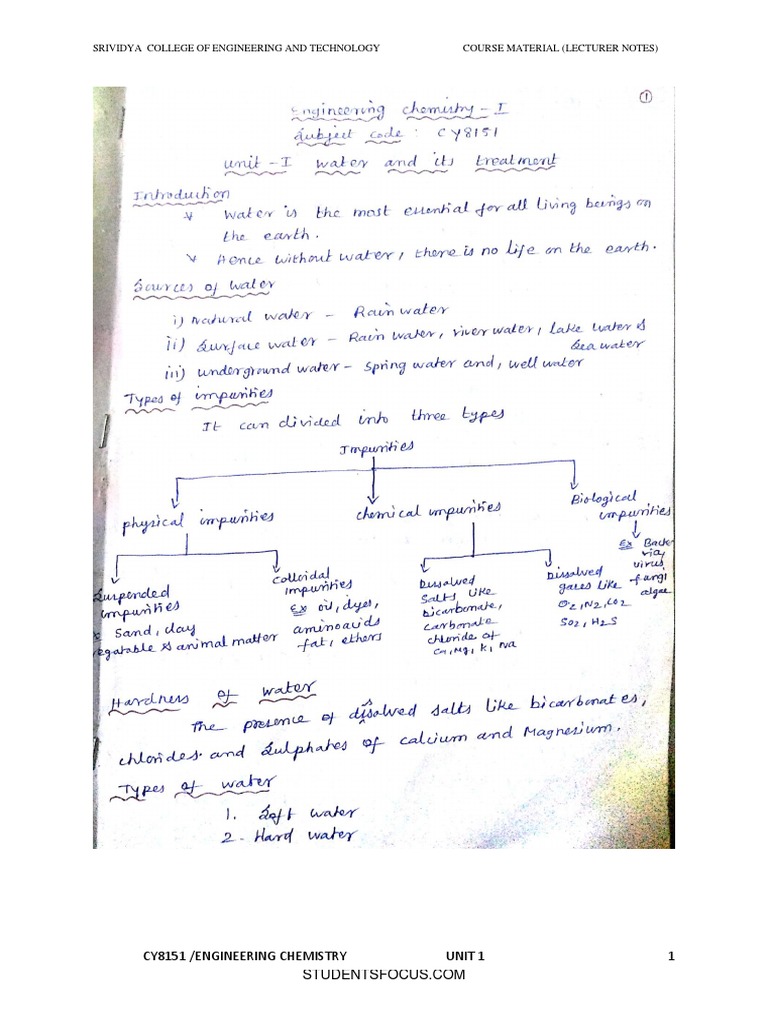 SRIVIDYA COLLEGE OF ENGINEERING AND TECHNOLOGY COURSE MATERIAL (LECTURER NOTES)
1
Engineering chemistry - I
Subject code : CY8151
unit - I water and its treatment
Introduction
water is the most essential for all living beings on
the earth.
Hence without water, there is no life on the earth.
Sources of water
i) Natural water - Rain water
ii) Surface water - Rain water, river water, lake water &
Sea water
iii) underground water - spring water and, well water
Types of impurities
It can divided into three types
Impurities
physical impurities chemical impurities Biological
impurities
Suspended
impurities
Sand, clay
vegatable & animal matter
Colloidal
impurities
Ex oil, dyes,
aminoacids
fat, ethers
Dissolved
Salts like
bicarbonate,
carbonate
chloride of
Ca, Mg, K, Na
Dissolved
gases like
O2, N2, CO2
SO2, H2S
Ex Bacte
ria,
virus
fungi
algae
Hardness of water
The presence of dissolved salts like bicarbonates,
chlorides. and Sulphates of calcium and Magnesium.
Types of water
1. Soft water
2. Hard water
CY8151 /ENGINEERING CHEMISTRY UNIT 1 1
STUDENTSFOCUS.COM